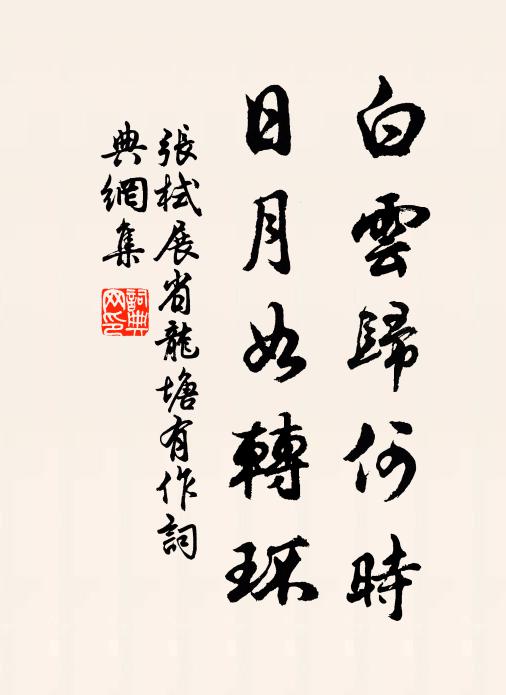 白雲歸何時
日月如轉環
張栻展省龍塘有作詞
典網集
詞典網印